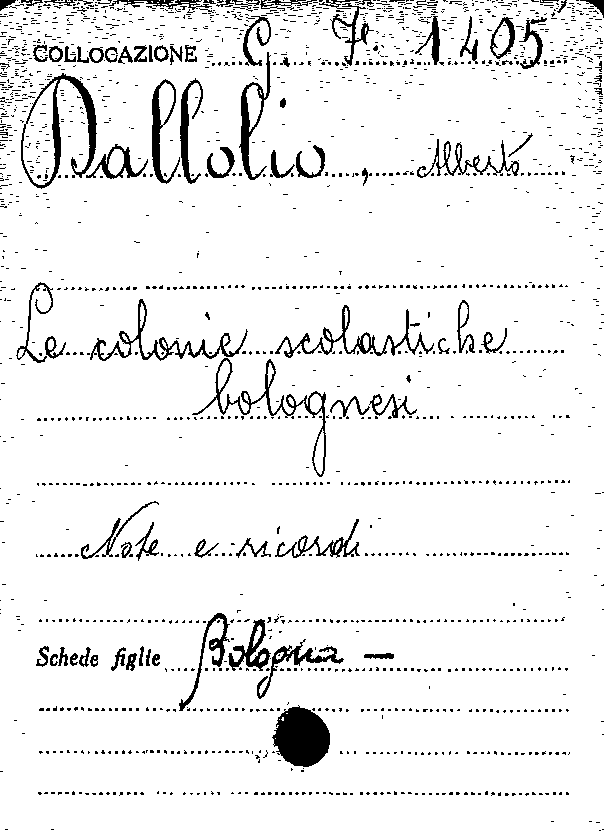 COLLOCAZIONE G. F. 1405
Dallolio, Alberto
Le colonie scolastiche
bolognesi
Note e ricordi
Schede figlie Bologna —